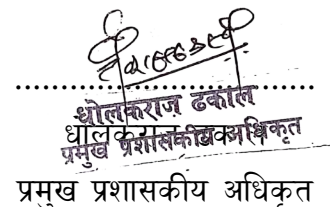 धोलकराज ढकाल
प्रमुख प्रशासकीय अधिकृत
प्रमुख प्रशासकीय अधिकृत